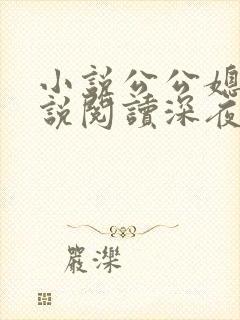 小說公公媳
說閱讀深夜
嚴濼